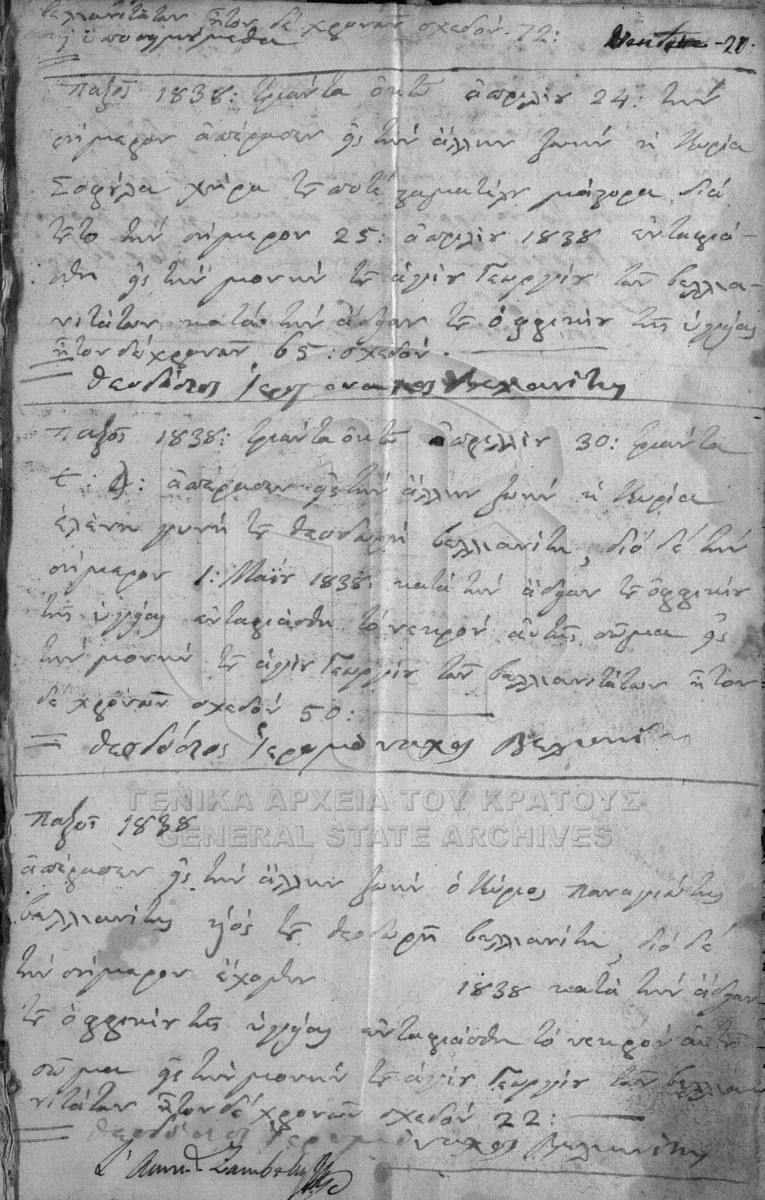 βελλιανιτάτων ἦτον δέ χρονῶν σχεδόν 72:
Παξοῖ 1838: τριάντα ὀκτῶ ἀπριλίου 24: τήν
σήμερον ἀπέρασεν εἰς τήν ἄλλην ζωήν ἡ Κυρία
χήρα τοῦ ποτέ μάζορα, διά
τοῦτο τήν σήμερον 25: ἀπριλίου 1838 ἐνταφιά-
σθη εἰς τήν μονήν τοῦ ἁγίου Γεωργίου τῶν βελλια-
νιτάτων κατά τήν ἄδειαν τοῦ ὀφφικίου τῆς ὑγείας
ἦτον δέ χρονῶν 65: σχεδόν.
θεοδόσιος Ἱερομόναχος Βελιανίτης
Παξοῖ 1838: τριάντα ὀκτῶ ἀπριλλίου 30: τριάντα
ἀπέρασεν εἰς τήν ἄλλην ζωήν ἡ Κυρία
ἑλένη γυνή τοῦ θεοδωρῆ βελλιανίτη, διό δέ τήν
σήμερον 1: Μαΐου 1838: κατά τήν ἄδειαν τοῦ ὀφφικίου
τῆς ὑγείας ἐνταφιάσθη τό νεκρόν αὐτῆς σῶμα εἰς
τήν μονήν τοῦ ἁγίου Γεωργίου τῶν βελλιανιτάτων ἦτον
δέ χρονῶν σχεδόν 50:
θεοδόσιος Ἱερομόναχος
ΓΕΝΙΚΑ ΑΡΧΕΙΑ ΤΟΥ ΚΡΑΤΟΥΣ
GENERAL STATE ARCHIVES
Παξοῖ 1838
ἀπέρασεν εἰς τήν ἄλλην ζωήν ὁ Κύριος παναγιώτης
βελλιανίτης υἱός τοῦ θεοδωρῆ βελλιανίτη, διό δέ
τήν σήμερον 1838 κατά τήν ἄδειαν
τοῦ ὀφφικίου τῆς ὑγείας ἐνταφιάσθη τό νεκρόν αὐτοῦ
σῶμα εἰς τήν μονήν τοῦ ἁγίου Γεωργίου τῶν βελλια
νιτάτων ἦτον δέ χρονῶν σχεδόν 22:
θεοδόσιος Ἱερομόναχος Βελιανίτης